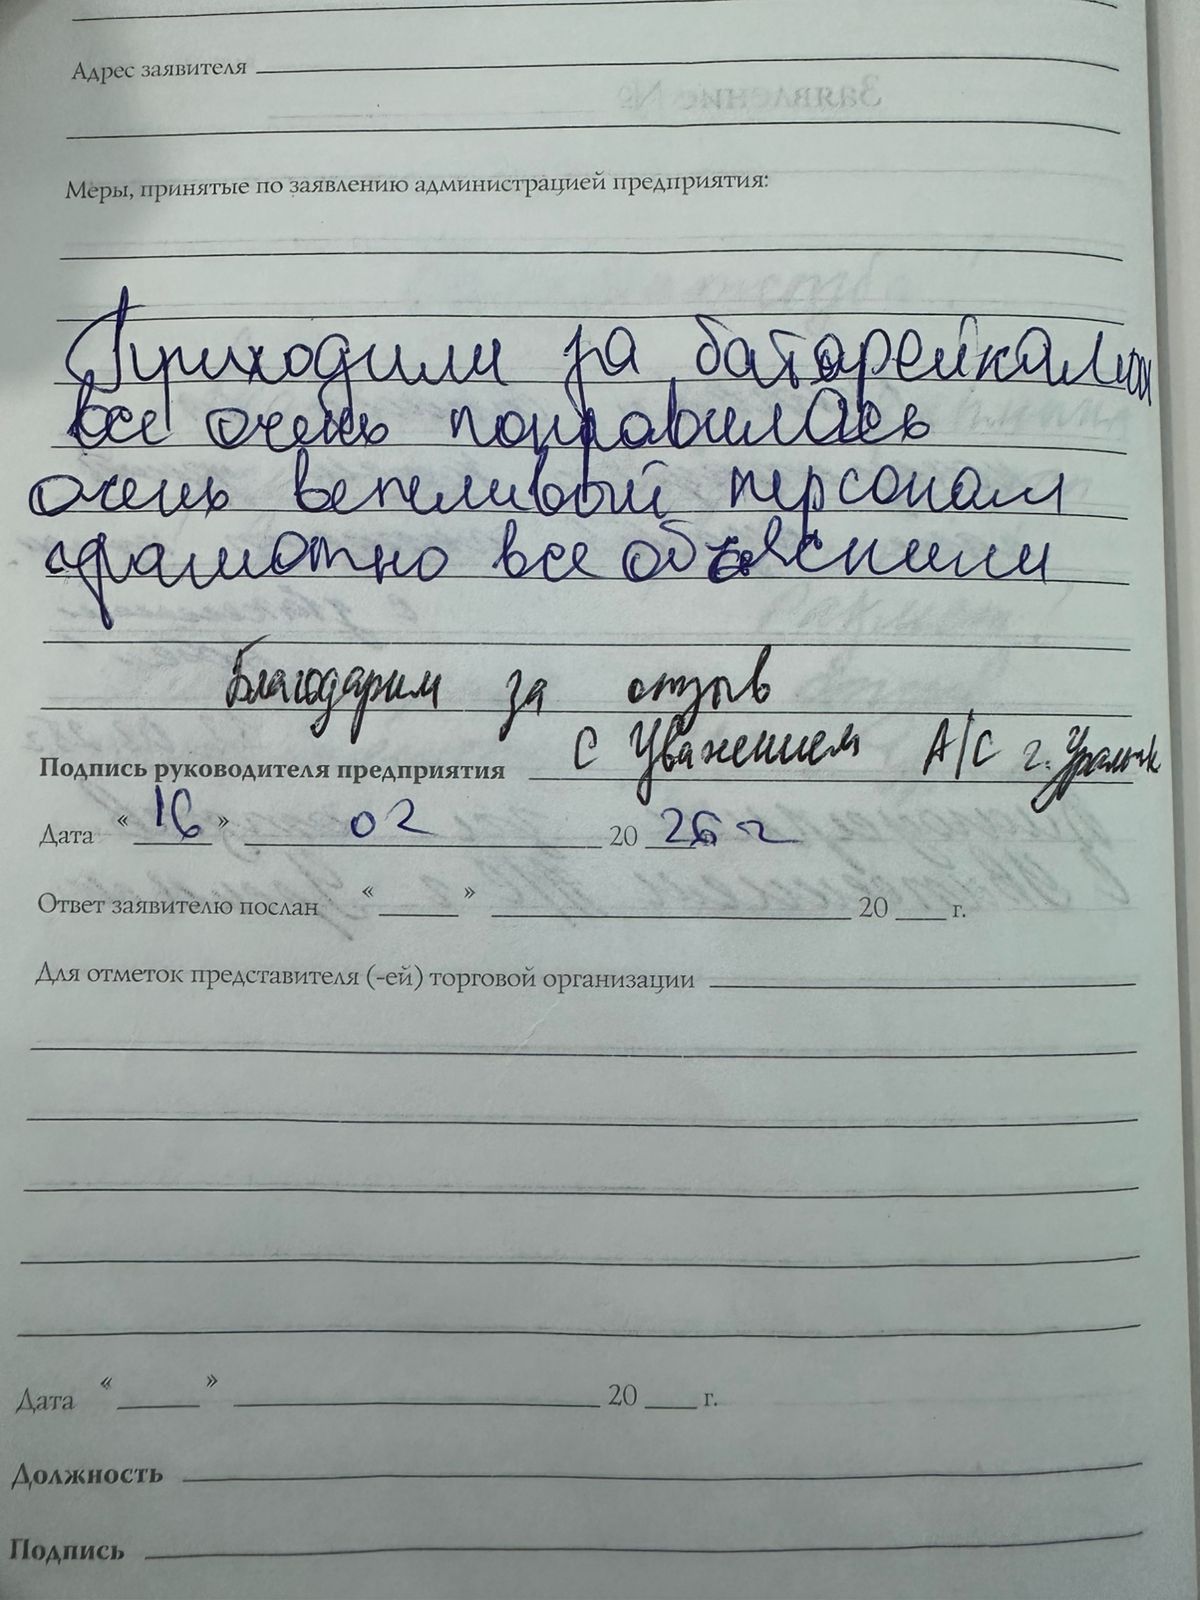 Адрес заявителя
Меры, принятые по заявлению администрацией предприятия:
Приходили за батарейками
все очень понравилось
очень вежливый персонал
грамотно все объяснили
Благодарим за отзыв
С Уважением А/С г. Уральск
Подпись руководителя предприятия
Дата « 16 » 02 20 26 г
Ответ заявителю послан « » 20 г.
Для отметок представителя (-ей) торговой организации
Дата « » 20 г.
Должность
Подпись